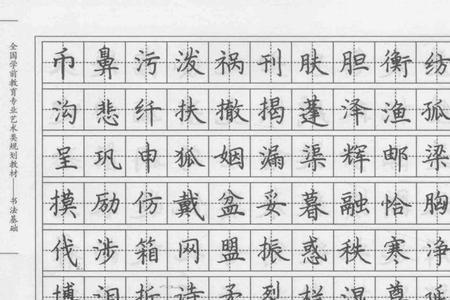 全国学前教育专业艺术类规划教材——书法基础
币鼻污泼祸刊肤胆衡纺
沟悲纤扶撤揭蓬泽渔孤
呈巩申狐姻漏渠辉邮梁
摸励仿戴盆妥暮融恰胸
代涉箱网盟振惑秩寒净
博泪折造矛烈栏混尊